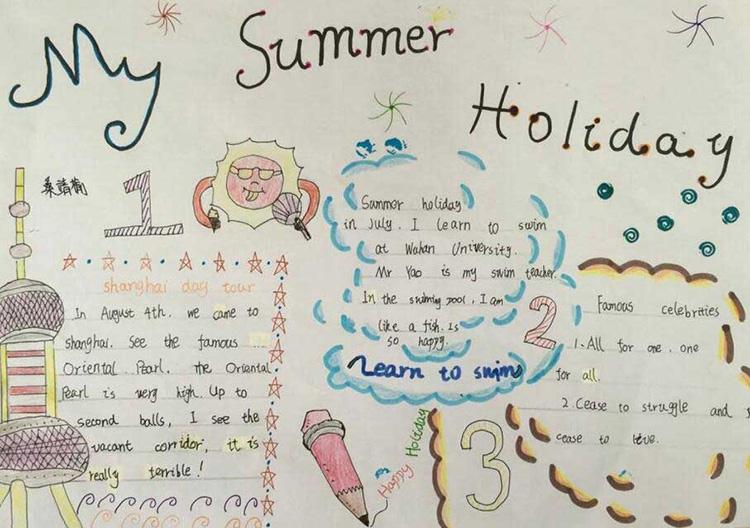 My Summer Holiday
1
shanghai day tour
In August 4th. we came to
shanghai. See the famous
Oriental Pearl. the Oriental
Pearl is very high. Up to
second balls, I see the
vacant corridor, it is
really terrible!
Summer holiday
in July. I learn to swim
at Wuhan University.
Mr Yao is my swim teacher.
In the swiming pool, I am
like a fish. Is
so happy.
Learn to swim
2
Happy Holiday
3
Famous celebrities
1. All for one, one
for all.
2. Cease to struggle and
cease to live.